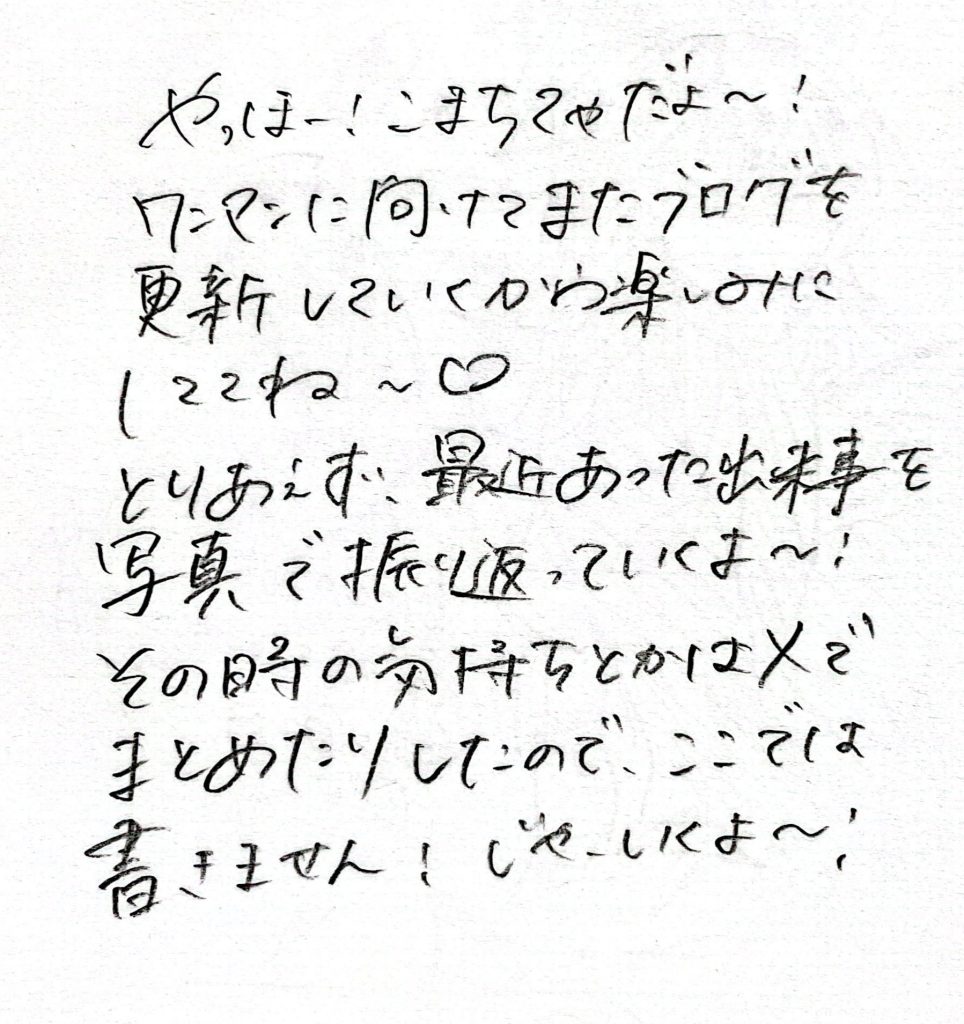 やっほー！こまちてゃだよ〜！
ワンマンに向けてまたブログを
更新していくから楽しみに
しててね〜♡
とりあえず、最近あった出来事を
写真で振り返っていくよ〜！
その時の気持ちとかはXで
まとめたりしたので、ここでは
書きません！じゃーいくよ〜！